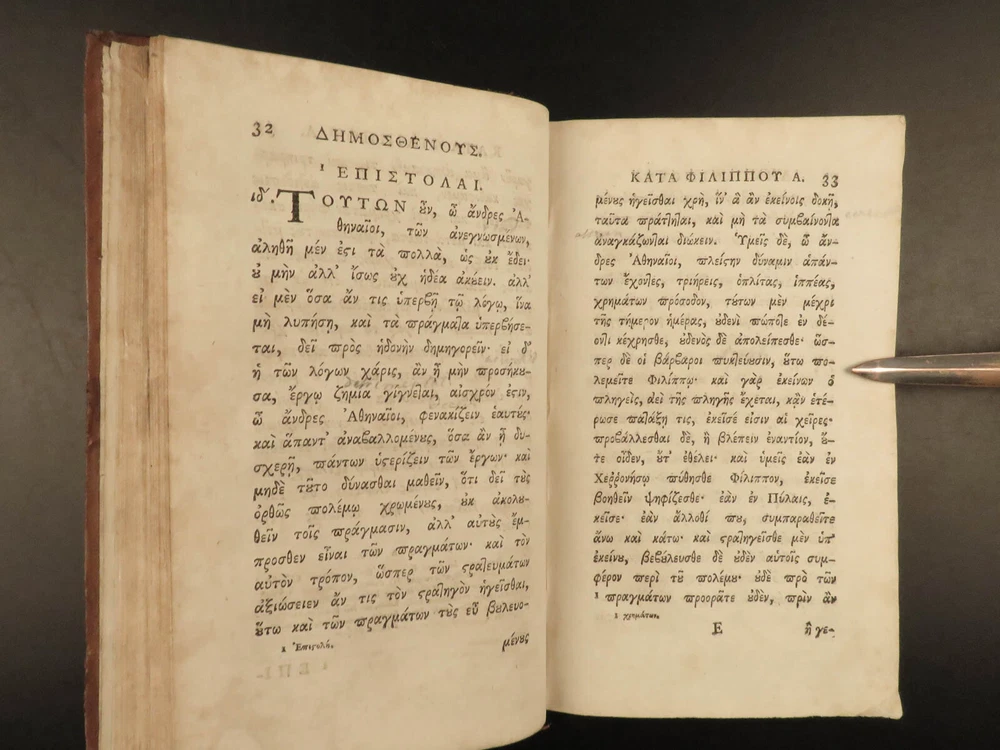 32
ΔΗΜΟΣΘΕΝΟΥΣ.
¹ ΕΠΙΣΤΟΛΑΙ.
ιδ´. ΤΟΥΤΩΝ ȣ̓͂ν, ὦ ἄνδρες Ἀ-
θηναῖοι, τῶν ἀνεγνωσμένων,
ἀληθῆ μέν ἐϛι τὰ πολλὰ, ὡς ȣ̓κ ἔδει·
ȣ̓ μὴν ἀλλ' ἴσως ȣ̓χ ἡδέα ἀκȣ́ειν. ἀλλ'
εἰ μὲν ὅσα ἄν τις ὑπερβῇ τῷ λόγῳ, ἵνα
μὴ λυπήσῃ, καὶ τὰ πράγμαΐα ὑπερβήσε-
ται, δεῖ πρὸς ἡδονὴν δημηγορεῖν· εἰ δ'
ἡ τῶν λόγων χάρις, ἂν ᾖ μὴ προσήκȣ-
σα, ἔργῳ ζημία γίγνεΐαι, αἰσχρόν ἐϛιν,
ὦ ἄνδρες Ἀθηναῖοι, φενακίζειν ἑαυτȣ́ς·
καὶ ἅπαντ' ἀναβαλλομένȣς, ὅσα ἂν ᾖ δυ-
σχερῆ, πάντων ὑϛερίζειν τῶν ἔργων· καὶ
μηδὲ τȣ͂το δύνασθαι μαθεῖν, ὅτι δεῖ τȣ̀ς
ὀρθῶς πολέμῳ χρωμένȣς, ȣ̓κ ἀκολȣ-
θεῖν τοῖς πράγμασιν, ἀλλ' αὐτȣ̀ς ἔμ-
προσθεν εἶναι τῶν πραγμάτων· καὶ τὸν
αὐτὸν τρόπον, ὥσπερ τῶν ϛραΐευμάτων
ἀξιώσειεν ἄν τις τὸν ϛραΐηγὸν ἡγεῖσθαι,
ȣ̔́τω καὶ τῶν πραγμάτων τȣ̀ς εὖ βȣλευο-
1 Ἐπιϛολή.
μένȣς
ΚΑΤΑ ΦΙΛΙΠΠΟΥ Α. 33
μένȣς ἡγεῖσθαι χρὴ, ἵν' ἃ ἂν ἐκείνοις δοκῇ,
ταῦτα πράτΐηΐαι, καὶ μὴ τὰ συμβαίνονΐα
ἀναγκάζωνΐαι διώκειν. Ὑμεῖς δὲ, ὦ ἄν-
δρες Ἀθηναῖοι, πλείϛην δύναμιν ἁπάν-
των ἔχονΐες, τριήρεις, ὁπλίτας, ἱππέας,
χρημάτων πρόσοδον, τȣ́των μὲν μέχρι
τῆς τήμερον ἡμέρας, ȣ̓δενὶ πώποΐε ἐν δέ-
ονΐι κέχρησθε, ȣ̓δενὸς δὲ ἀπολείπεσθε· ὥσ-
περ δὲ οἱ βάρβαροι πυκΐεύȣσιν, ȣ̔́τω πο-
λεμεῖτε Φιλίππῳ· καὶ γὰρ ἐκείνων ὁ
πληγεὶς, ἀεὶ τῆς πληγῆς ἔχεται, κᾂν ἑτέ-
ρωσε παΐάξῃ τις, ἐκεῖσέ εἰσιν αἱ χεῖρες·
προβάλλεσθαι δὲ, ἢ βλέπειν ἐναντίον, ȣ̓́-
τε οἶδεν, ȣ̓́τ' ἐθέλει· καὶ ὑμεῖς ἐὰν ἐν
Χεῤῥονήσῳ πύθησθε Φίλιππον, ἐκεῖσε
βοηθεῖν ψηφίζεσθε· ἐὰν ἐν Πύλαις, ἐ-
κεῖσε· ἐὰν ἄλλοθί πȣ, συμπαραθεῖτε
ἄνω καὶ κάτω· καὶ ϛραΐηγεῖσθε μὲν ὑπ'
ἐκείνȣ, βεβȣ́λευσθε δὲ ȣ̓δὲν αὐτοῖς συμ-
φέρον περὶ τȣ͂ πολέμȣ· ȣ̓δὲ πρὸ τῶν
¹ πραγμάτων προορᾶτε ȣ̓δὲν, πρὶν ἂν
1 χρημάτων.
E
ἢ γε-